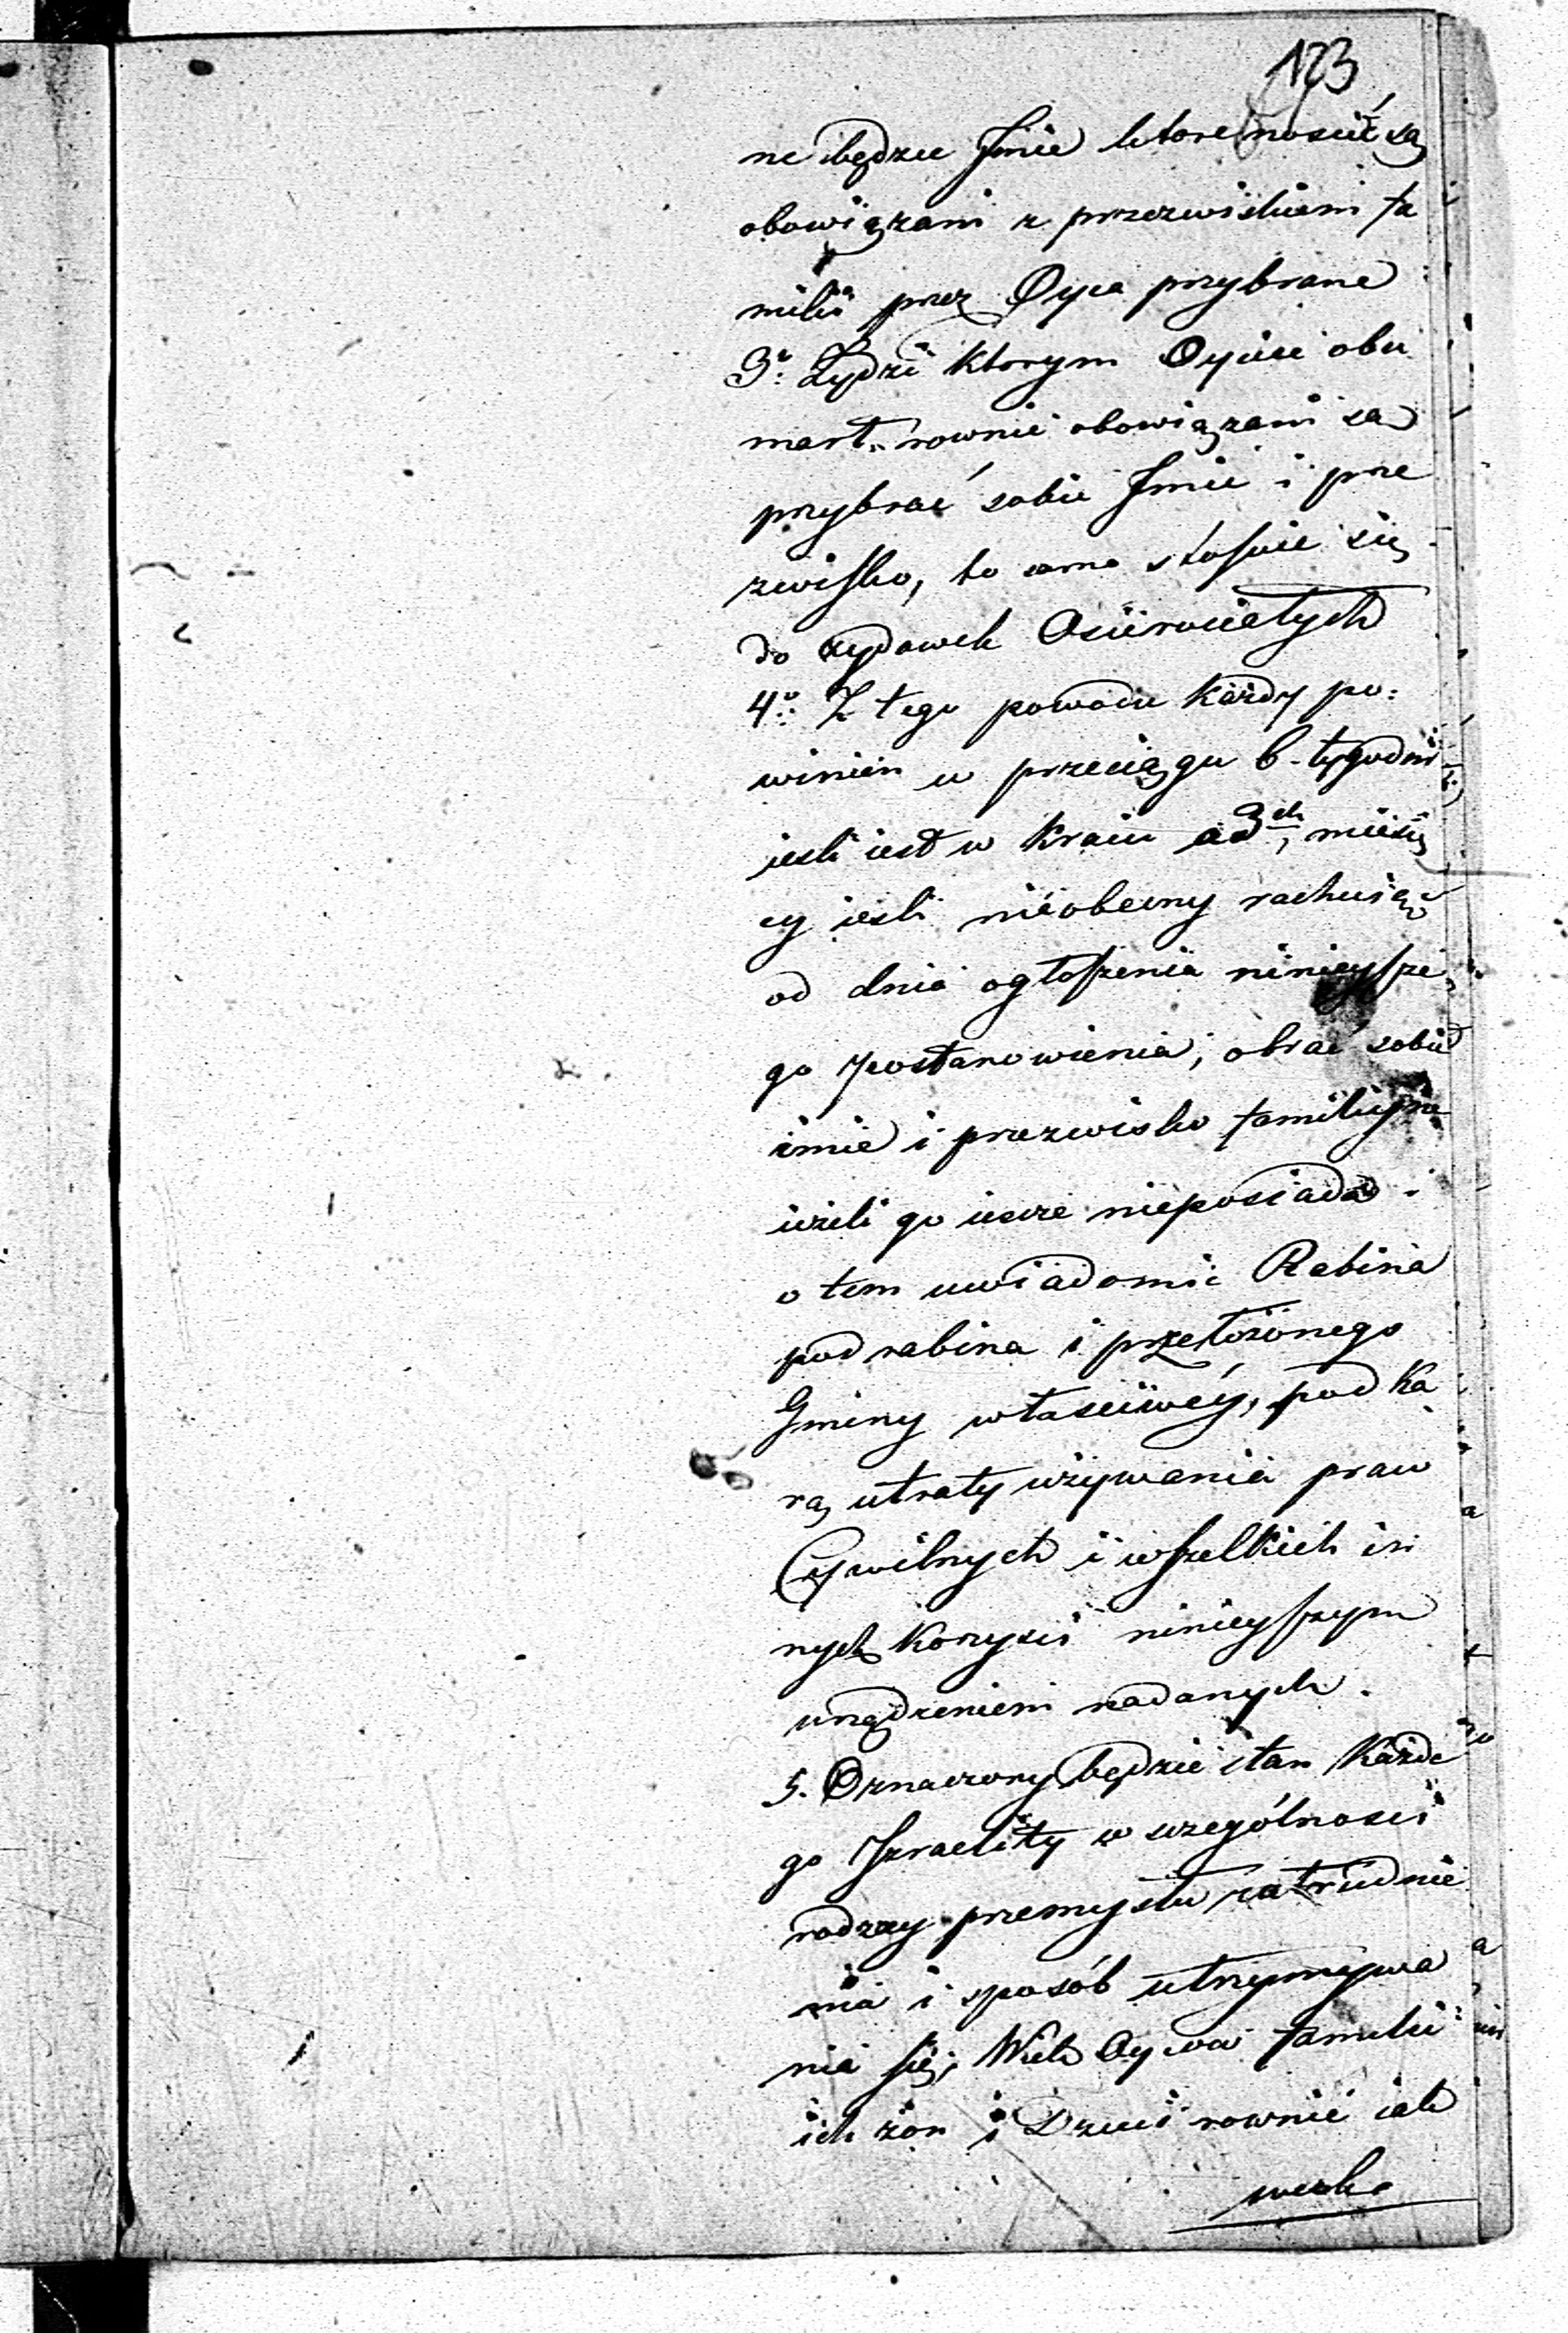 123
ne będzie Jmie które nosić są
obowiązani z przezwiskiem fa
milii przez Oyca przybrane
3º Żydzi ktorym Oyciec obu
marł, rownie obowiązani są
przybrać sobie Jmie i prze
zwisko, to samo stosuie się
do żydowek Osierociałych
4º Z tego powodu każdy po:
winien w przeciągu 6. tygodni
iesli iest w kraiu a 3ch miesię
cy iesli nieobecny rachuiąc
od dnia ogłoszenia ninieysze
go postanowienia, obrać sobie
imie i przezwisko familiyne
ieżeli go iescze nieposiada i
o tem uwiadomić Rabina
pod rabina i przełożonego
Gminy właściwéy, pod ka
rą utraty używania praw
Cywilnych i wszelkich in
nych korzyści ninieyszym
urządzeniem nadanych.
5. Oznaczony będzie stan każde
go Jzraelity w szczególności
rodzay przemysłu zatrudnie
nia i sposób utrzymywa
nia się; Wiek Oyców familii
ich żon i Dzieci rownie iak